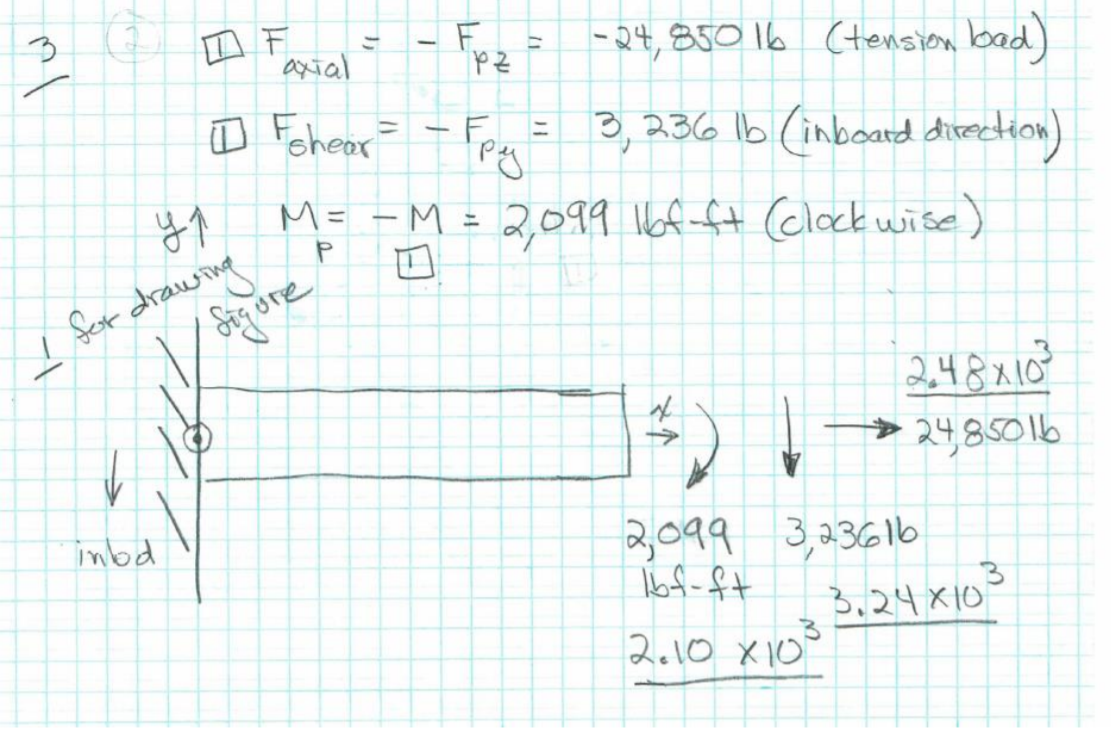 3 (2) [1] F axial = - F pz = -24,850 lb (tension load)
[1] F shear = - F py = 3,236 lb (inboard direction)
y↑ M p = - M = 2,099 lbf-ft (clockwise)
[1]
1 for drawing figure
x →
2.48 x10³
→ 24,850 lb
inbd
2,099 lbf-ft
3,236 lb
3.24 x10³
2.10 x10³